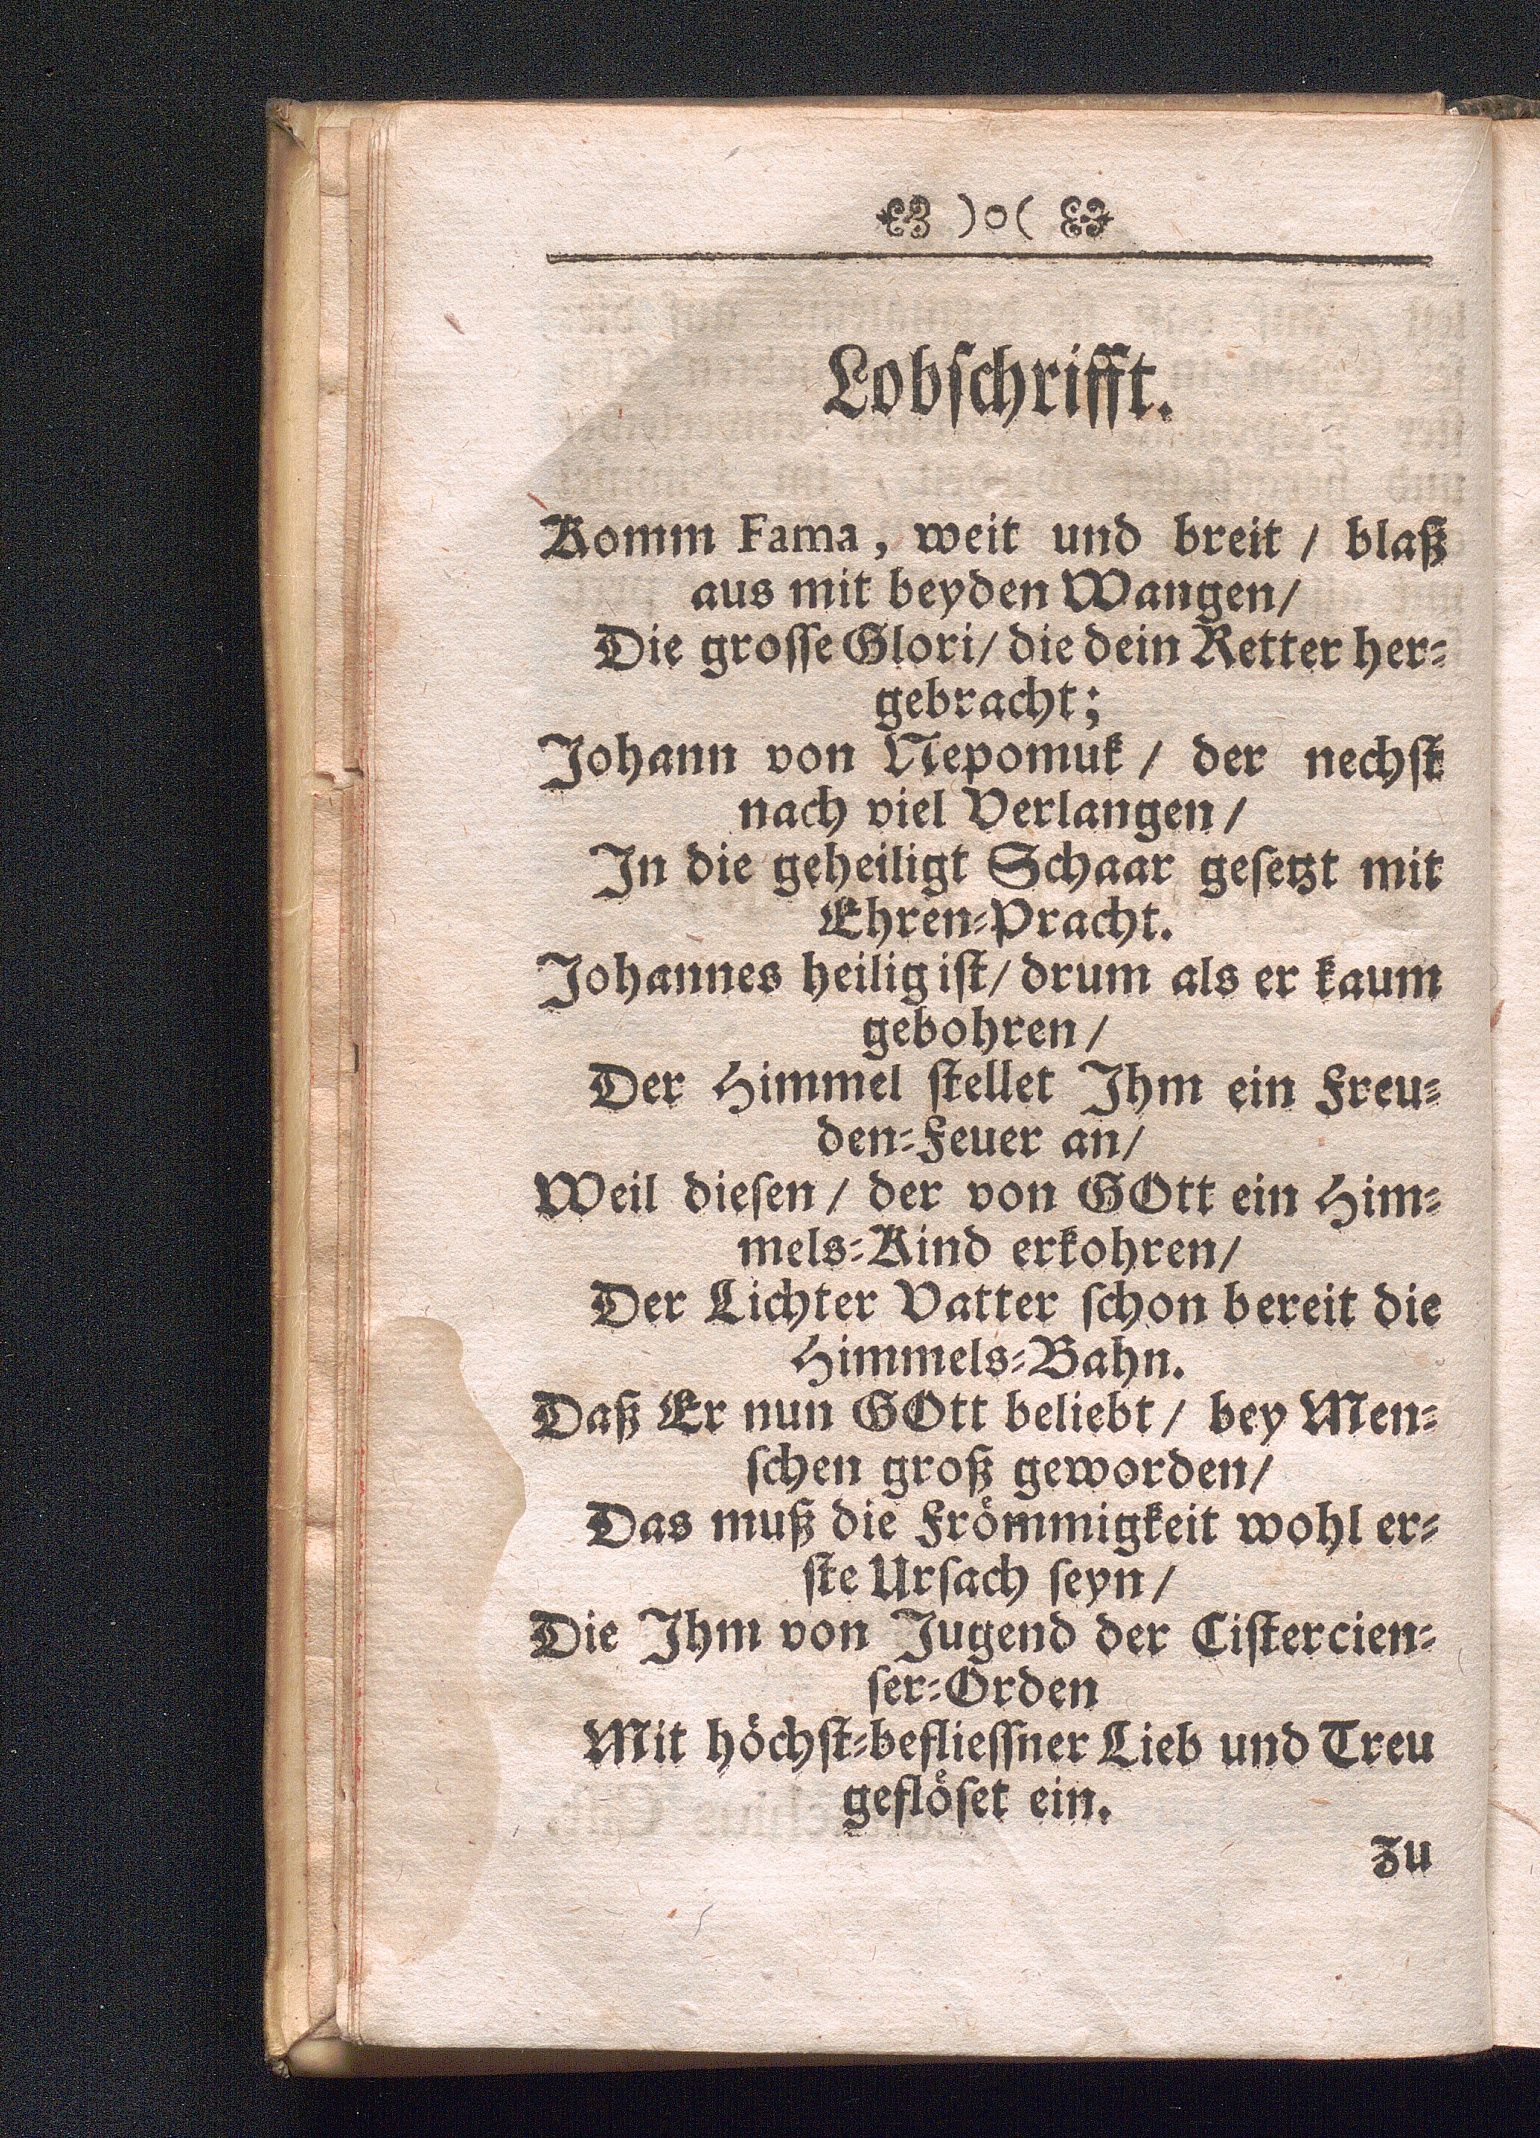 )o(
Lobschrifft.
Komm Fama, weit und breit / blaß
aus mit beyden Wangen/
Die grosse Glori/ die dein Retter her-
gebracht;
Johann von Nepomuk / der nechst
nach viel Verlangen/
In die geheiligt Schaar gesetzt mit
Ehren-Pracht.
Johannes heilig ist/ drum als er kaum
gebohren/
Der Himmel stellet Ihm ein Freu-
den-Feuer an/
Weil diesen / der von GOtt ein Him-
mels-Kind erkohren/
Der Lichter Vatter schon bereit die
Himmels-Bahn.
Daß Er nun GOtt beliebt / bey Men-
schen groß geworden/
Das muß die Frömmigkeit wohl er-
ste Ursach seyn/
Die Ihm von Jugend der Cistercien-
ser-Orden
Mit höchst-befliessner Lieb und Treu
geflöset ein.
Zu